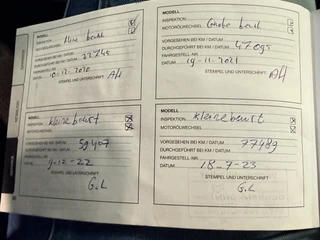 MODELL
INSPEKTION
MOTORÖLWECHSEL
VORGESEHEN BEI KM / DATUM
DURCHGEFÜHRT BEI KM / DATUM 22745
FAHRGESTELL-NR.
DATUM 10-12-2020
STEMPEL UND UNTERSCHRIFT
AH
MODELL
INSPEKTION Große
MOTORÖLWECHSEL
VORGESEHEN BEI KM / DATUM
DURCHGEFÜHRT BEI KM / DATUM 47095
FAHRGESTELL-NR.
DATUM 19-11-2021
STEMPEL UND UNTERSCHRIFT
AH
MODELL
INSPEKTION kleine
MOTORÖLWECHSEL
VORGESEHEN BEI KM / DATUM
DURCHGEFÜHRT BEI KM / DATUM 59407
FAHRGESTELL-NR.
DATUM 9-12-22
STEMPEL UND UNTERSCHRIFT
G.L
MODELL
INSPEKTION kleine
MOTORÖLWECHSEL
VORGESEHEN BEI KM / DATUM
DURCHGEFÜHRT BEI KM / DATUM 77489
FAHRGESTELL-NR.
DATUM 18-7-23
STEMPEL UND UNTERSCHRIFT
G.L